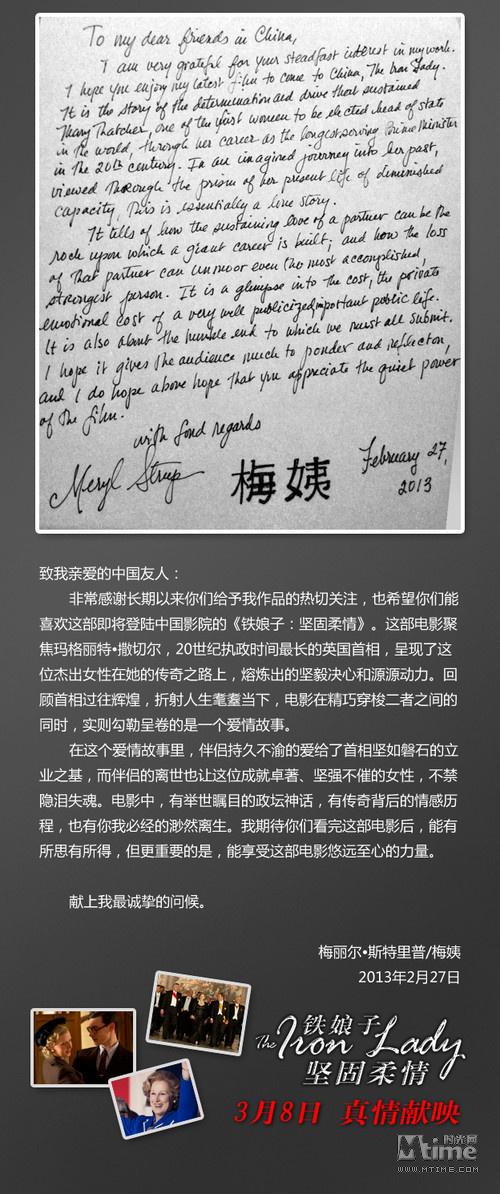 To my dear friends in China,
I am very grateful for your steadfast interest in my work.
I hope you enjoy my latest film to come to China, The Iron Lady.
It is the story of the determination and drive that sustained
Margaret Thatcher, one of the first women to be elected head of state
in the world, through her career as the longest serving Prime Minister
in the 20th century. In an imagined journey into her past,
viewed through the prism of her present life of diminished
capacity, this is essentially a love story.
It tells of how the sustaining love of a partner can be the
rock upon which a great career is built; and how the loss
of that partner can unmoor even the most accomplished,
strongest person. It is a glimpse into the cost, the private
emotional cost of a very well publicized, important public life.
It is also about the humble end to which we must all submit.
I hope it gives the audience much to ponder and reflect on,
and I do hope above hope that you appreciate the quiet power
of the film.
with fond regards
Meryl Streep
梅姨
February 27,
2013
致我亲爱的中国友人：
非常感谢长期以来你们给予我作品的热切关注，也希望你们能
喜欢这部即将登陆中国影院的《铁娘子：坚固柔情》。这部电影聚
焦玛格丽特·撒切尔，20世纪执政时间最长的英国首相，呈现了这
位杰出女性在她的传奇之路上，熔炼出的坚毅决心和源源动力。回
顾首相过往辉煌，折射人生耄耋当下，电影在精巧穿梭二者之间的
同时，实则勾勒呈卷的是一个爱情故事。
在这个爱情故事里，伴侣持久不渝的爱给了首相坚如磐石的立
业之基，而伴侣的离世也让这位成就卓著、坚强不催的女性，不禁
隐泪失魂。电影中，有举世瞩目的政坛神话，有传奇背后的情感历
程，也有你我必经的渺然离生。我期待你们看完这部电影后，能有
所思有所得，但更重要的是，能享受这部电影悠远至心的力量。
献上我最诚挚的问候。
梅丽尔·斯特里普/梅姨
2013年2月27日
铁娘子
The Iron Lady
坚固柔情
3月8日 真情献映
Mtime 时光网
WWW.MTIME.COM